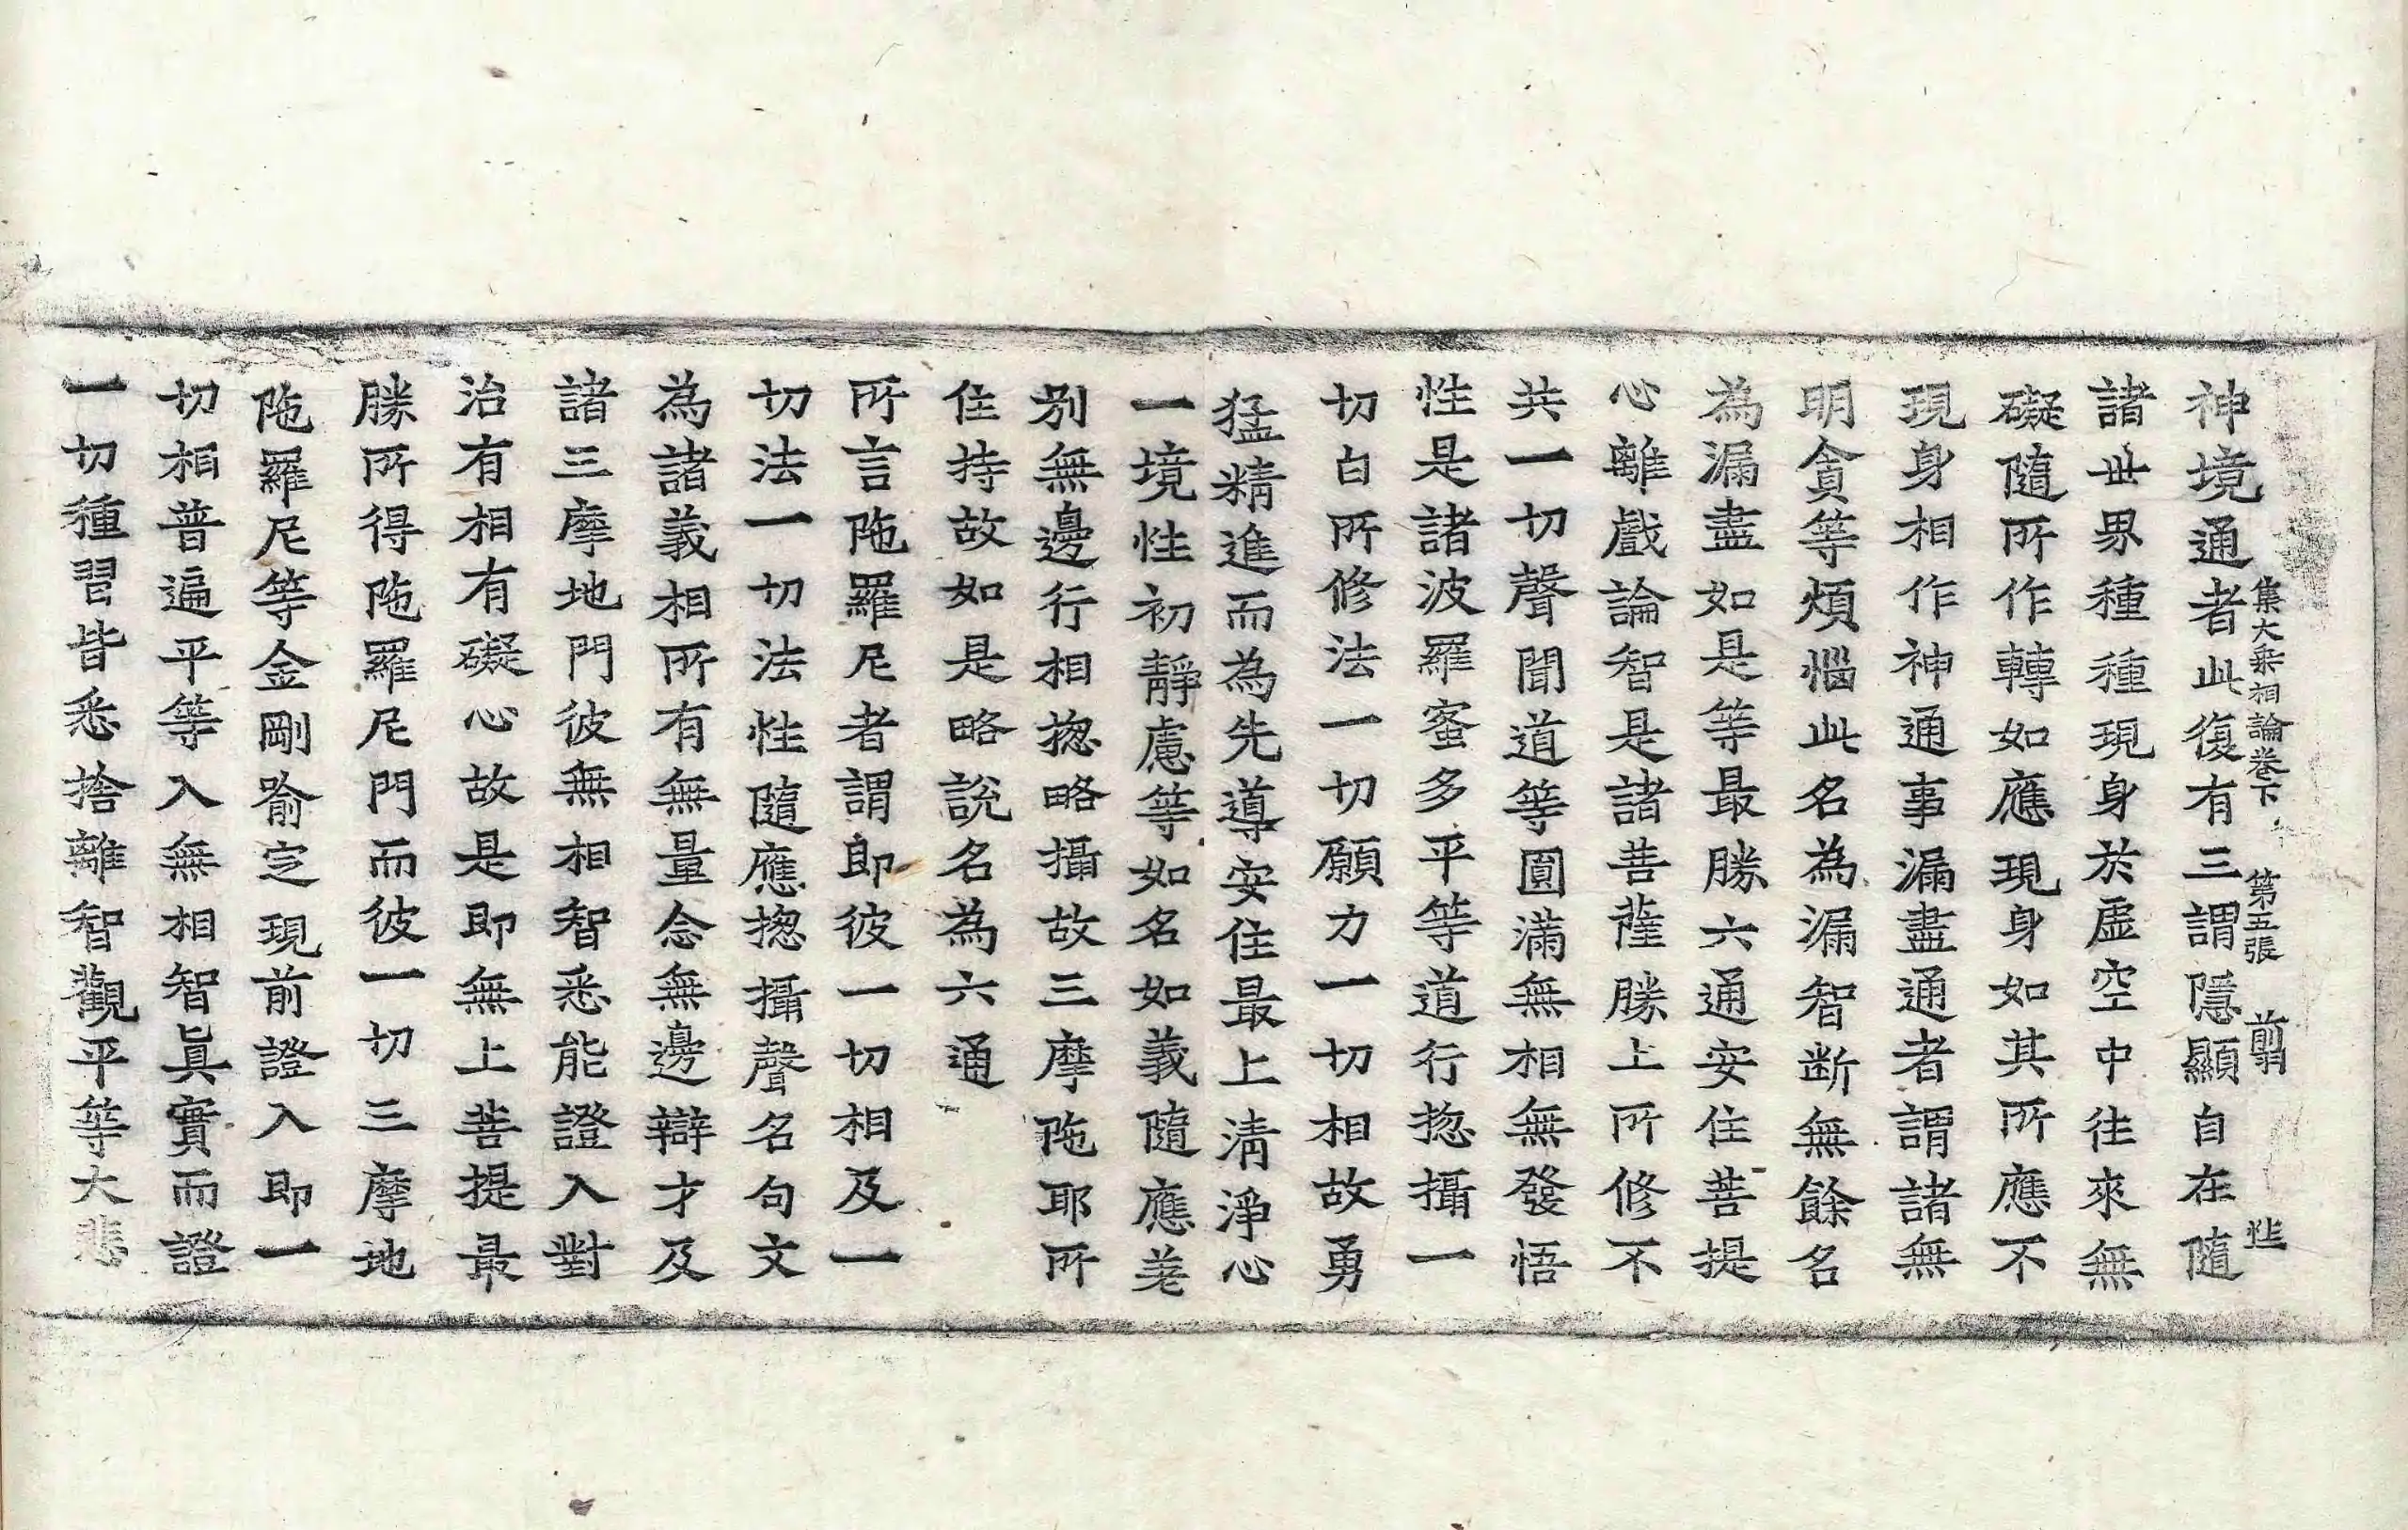 集大乘相論卷下 第五張 翦
神境通者此復有三謂隱顯自在隨
諸世界種種現身於虛空中往來無
礙隨所作轉如應現身如其所應不
現身相作神通事漏盡通者謂諸無
明貪等煩惱此名為漏智断無餘名
為漏盡如是等最勝六通安住菩提
心離戲論智是諸菩薩勝上所修不
共一切聲聞道等圓滿無相無發悟
性是諸波羅蜜多平等道行揔攝一
切白所修法一切願力一切相故勇
猛精進而為先導安住最上清淨心
一境性初靜慮等如名如義隨應差
別無邊行相揔略攝故三摩陁耶所
住持故如是略說名為六通
所言陁羅尼者謂即彼一切相及一
切法一切法性隨應揔攝聲名句文
為諸義相所有無量念無邊辯才及
諸三摩地門彼無相智悉能證入對
治有相有礙心故是即無上菩提最
勝所得陁羅尼門而彼一切三摩地
陁羅尼等金剛喻定現前證入即一
切相普遍平等入無相智眞實而證
一切種習皆悉捨離智觀平等大悲